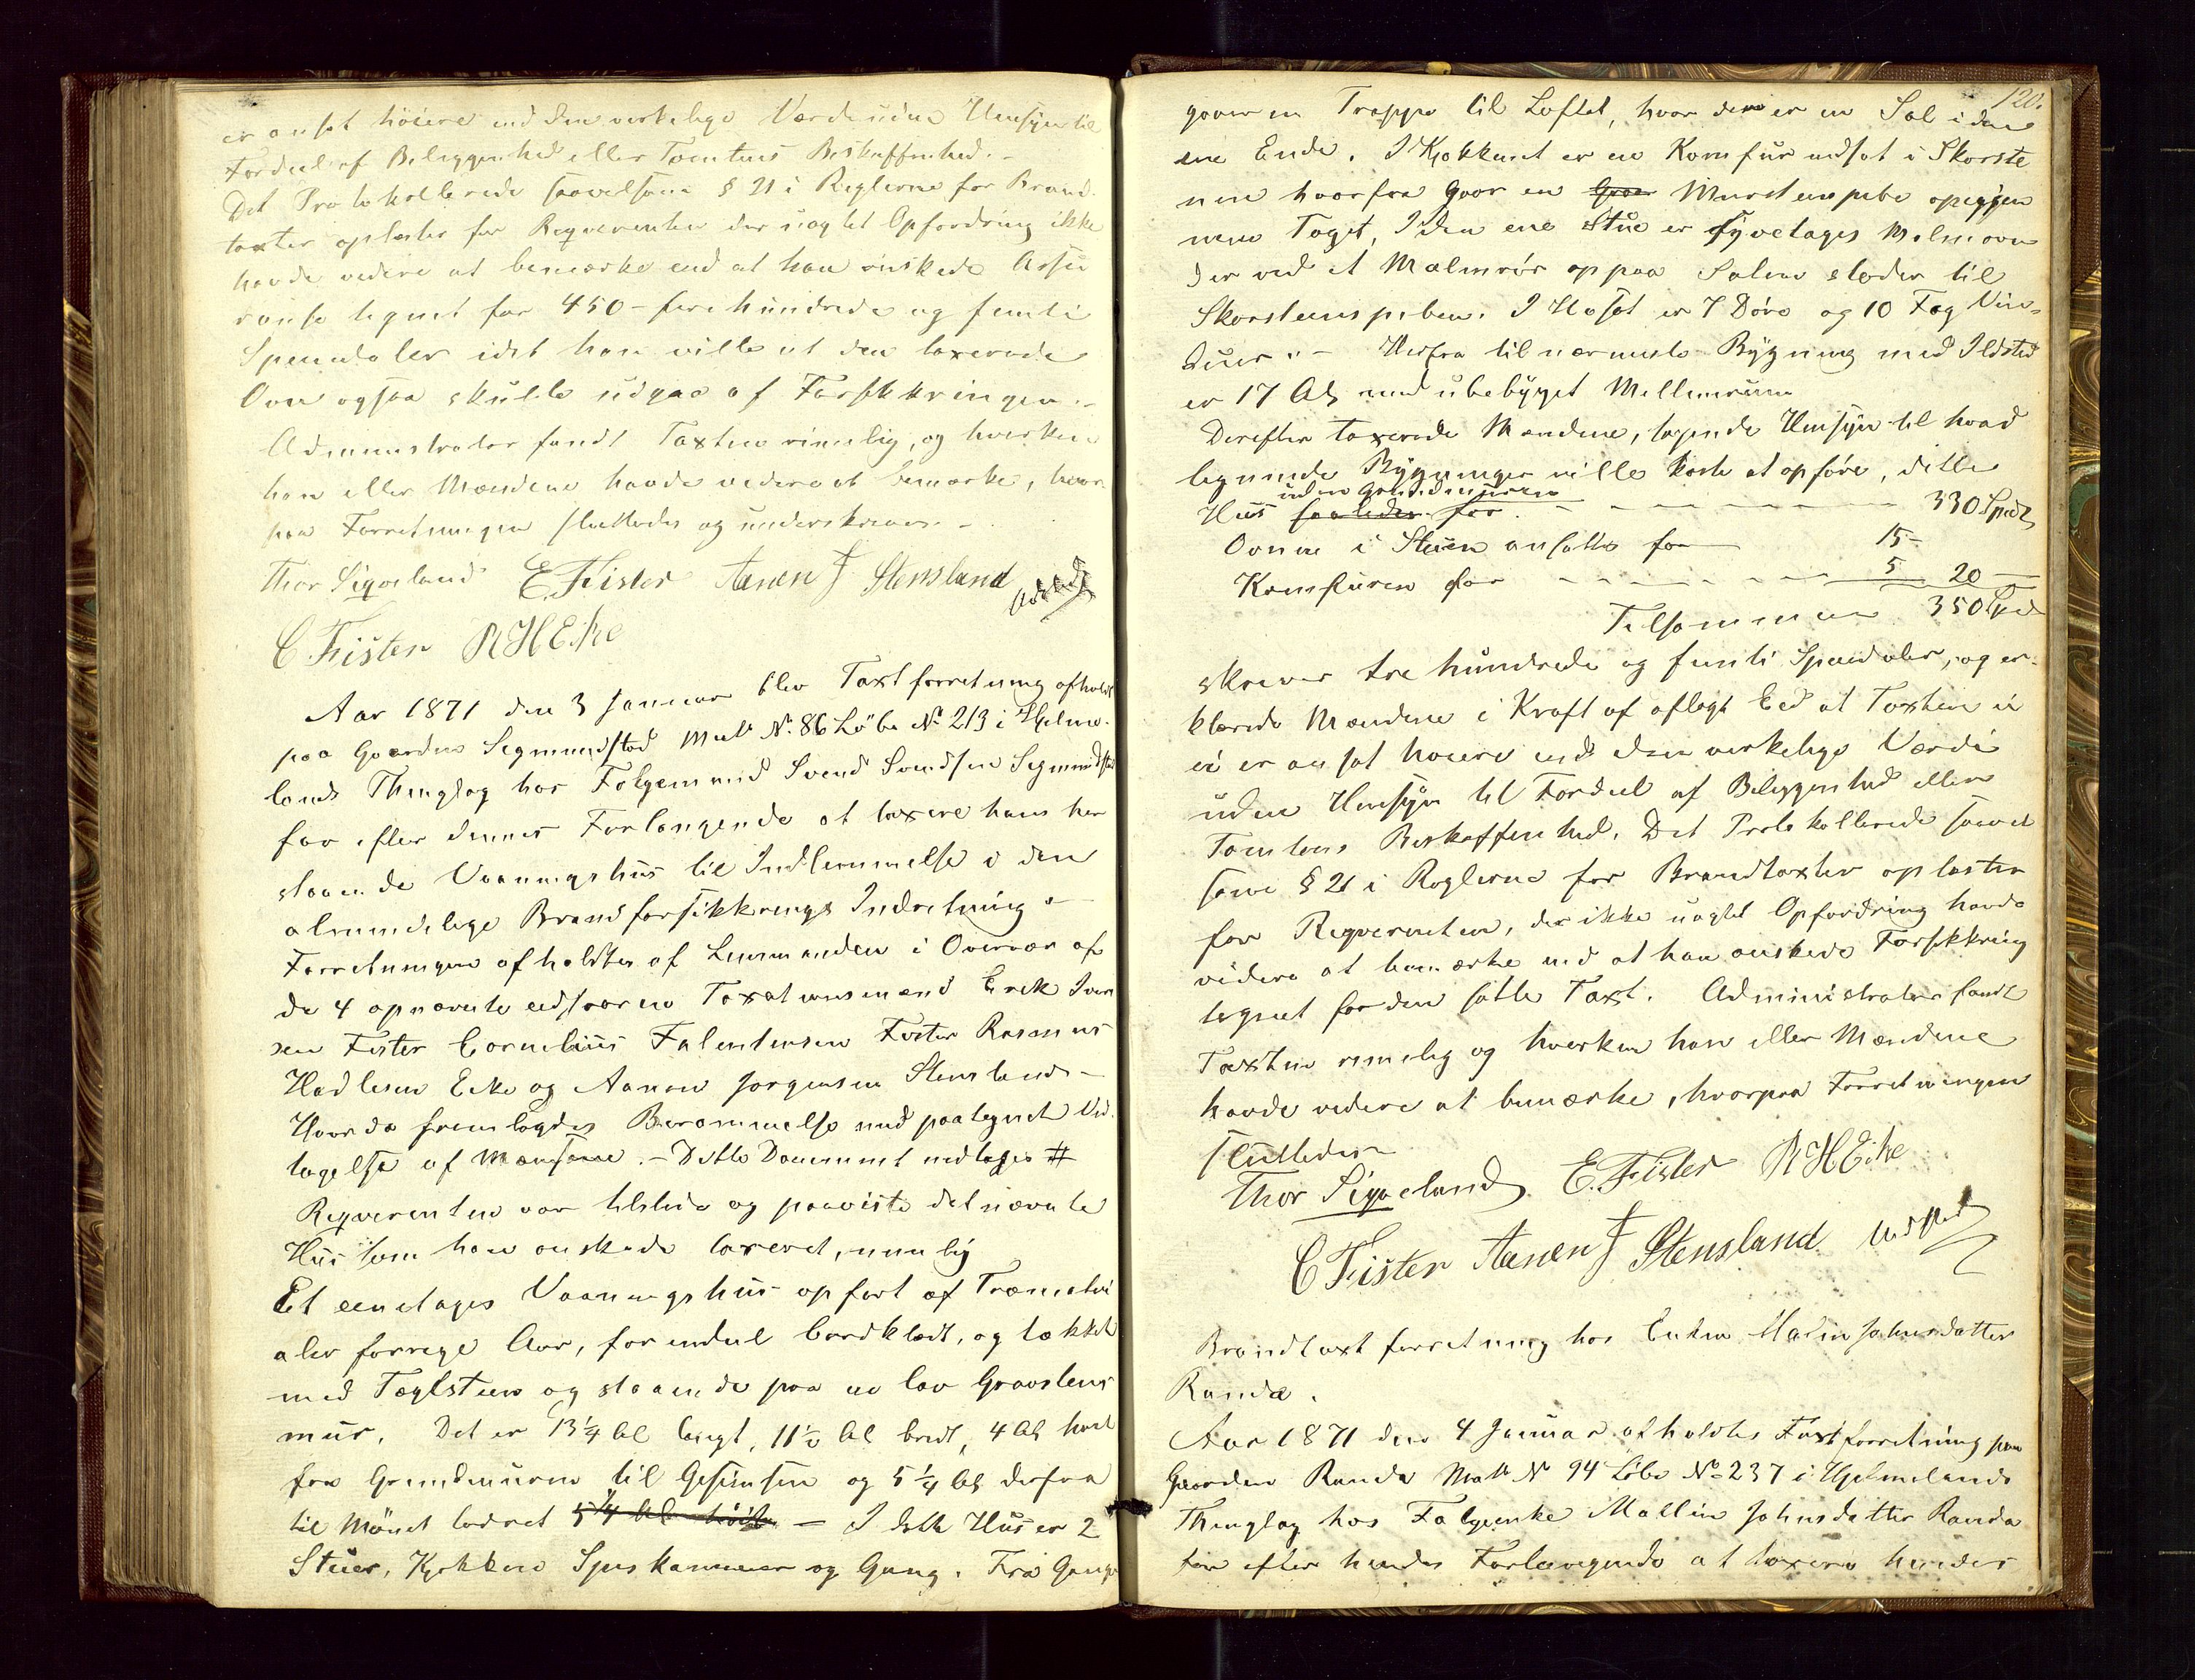 er ansat höiere end den verkelige Værdie uden Hensyn til
Fordeel af Beliggenhed eller Tomtens Beskaffenhed. -
Det Protokollerede saavelsom § 21 i Reglerne for Brand-
taxter oplæstes for Reqverenten der uagtet Opfordring ikke
havde videre at bemærke end at han önskede Assu
ranse tegnet for 450 - fire hundrede og femti
Speciedaler idet han ville at den taxerede
Ovn ogsaa skulle udgaa af Forsikkringen. -
Administrator fandt Taxten rimelig, og hverken
han eller Mændene havde videre at bemærke, hvor
paa Forretningen sluttedes og underskreves. -
Thor Sigveland E. Fister Aanen J Stensland
C. Fister R H Eike
Aar 1871 den 3 Januar blev Taxtforretning afholdt
paa Gaarden Segmundstad Matr N. 86 Löbe No 213 i Hjelme-
lands Thinglag hos Folgemand Svend Svendsen Segmundstad
for efter dennes Forlangende at taxere hans her
staaende Vaaningshus til Indlemmelse i den
almindelige Brandforsikkrings Indretning. -
Forretningen afholdtes af Lensmanden i Overvær af
de 4 opnævnte eedsvorne Taxationsmænd Erik Iver
sen Fister Cornelius Falentinsen Fister Rasmus
Hadlesen Eike og Aanen Jorgensen Stensland -
Hvor da fremlagdes Berammelse med paategnet Ved-
tagelse af Mændene. - Dette Document medtages #
Reqverenten var tilstede og paaviste det nævnte
Hus som han onskede taxeret, nemlig
Et eenetages Vaaningshus opfort af Træmateri
aler forrige Aar, for endeel bordklædt, og tækket
med Taglsteen og staaende paa en lav Graasteens
mur. Det er 13 1/4 Al langt, 11 1/2 Al bredt, 4 Al hoit
fra Grundmuren til Gesimsen og 5 1/4 Al derfra
til Mönet lodret 5 1/4 Al höit - I dette Hus er 2
Stuer, Kjokken Spiskammer og Gang. Fra Gangen
120.
gaaer en Trappe til Loftet, hvor der er en Sal i den
ene Ende. I Kjokkenet er en Komfur indsat i Skorste
nen hvorfra gaar en gaar Murstenspibe opigjen
nem Taget, I den ene Stue er tyvetages Malmovn
der ved et Malmrör op paa Salen støder til
Skorsteenspiben. I Huset er 7 Döre og 10 Fag Vin-
duer. - Herfra til nærmeste Bygning med Ildsted
er 17 Al med ubebygget Mellemrum
Derefter taxerede Mændene, tagende Hensyn til hvad
lignende Bygninger ville koste at opföre, dette
uden Grundmuren
Hus saaledes for - - - 330 Spd
Ovnen i Stuen ansattes for 15 -
Komfuren for - - - 5 20 -
Tilsammen 350 Spd
skriver tre hundrede og femti Speciedaler, og er-
klærede Mændene i Kraft af aflagt Eed at Taxten ei
ei er ansat hoiere end den verkelige Værdi
uden Hensyn til Fordeel af Beliggenhed eller
Tomtens Beskaffenhed. Det Protokollerede saavel
som § 21 i Reglerne for Brandtaxter oplæstes
for Reqverenten, der ikke uagtet Opfordring havde
videre at bemærke end at han onskede Forsikkring
tegnet for den satte Taxt. Administrator fandt
Taxten rimelig og hverken han eller Mændene
havde videre at bemærke, hvorpaa Forretningen
sluttedes
Thor Sigveland E. Fister R H Eike
C Fister Aanen J Stensland Udstedt
Brandtaxtforretning hos Enken Malin Johnsdatter
Randa.
Aar 1871 den 4 Januar afholdtes Taxtforretning paa
Gaarden Randa Matr N 94 Löbe No 237 i Hjelmelands
Thinglag hos Folgeenke Mallin Johnsdatter Randa
for efter hendes Forlangende at taxere hendes